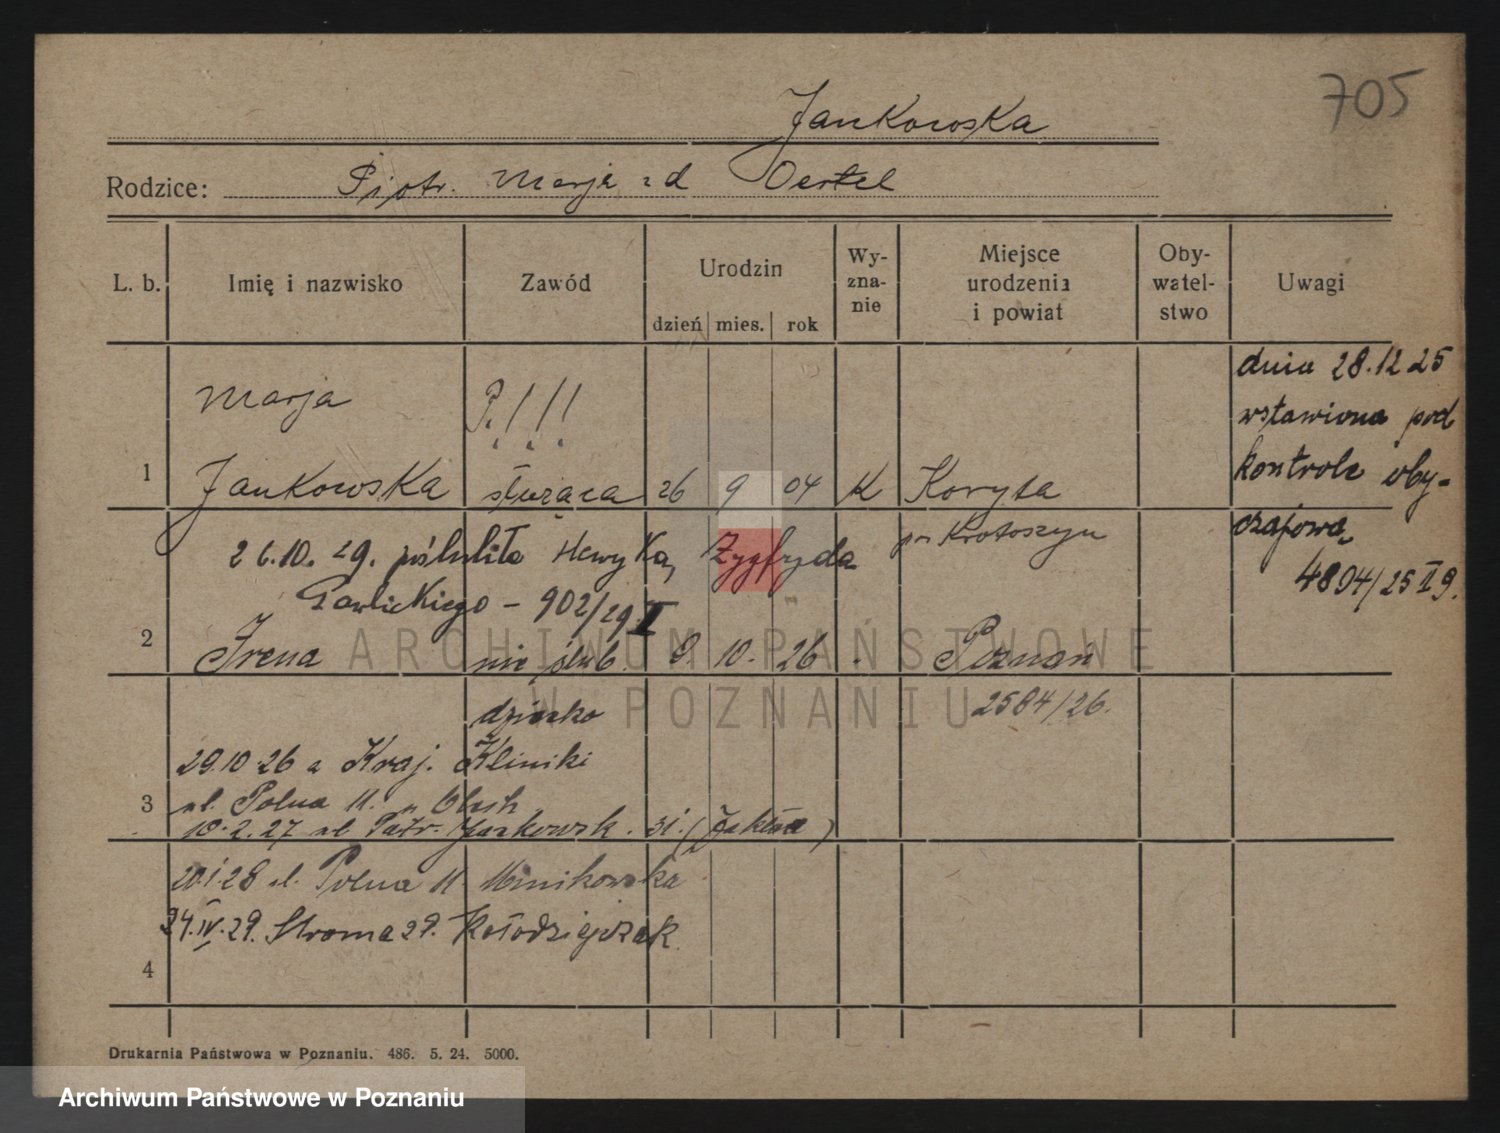 705
Jankowska
Rodzice: Piotr. Marja z d Oertel
L. b. Imię i nazwisko Zawód Urodzin dzień mies. rok Wy-zna-nie Miejsce urodzenia i powiat Oby-watel-stwo Uwagi
dnia 28.12 25
Marja P. ! ! !
wstawiona pod
kontrole oby-
1 Jankowska służąca 26 9 04 K Koryta
czajową
26.10.29. poślubiła Zygfryda pow Krotoszyn
4804/25 II 9.
Gawlickiego - 902/29 II
2 Irena nieślub. 9 10. 26 . Poznań
dziecko 2584/26.
29.10.26 a Kraj. Kliniki
3 ul. Polna 11.
10.2.27 ul Patr. Jackowsk. 31. ( )
20.1.28 ul. Polna 11 Minikowska
24.IV.29. Stroma 29. Kołodziejczak.
4
Drukarnia Państwowa w Poznaniu. 486. 5. 24. 5000.
ARCHIWUM PAŃSTWOWE
W POZNANIU
Archiwum Państwowe w Poznaniu